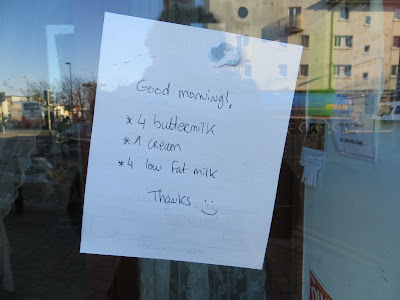 Good morning!
* 4 buttermilk
* 1 cream
* 4 low fat milk
Thanks :)